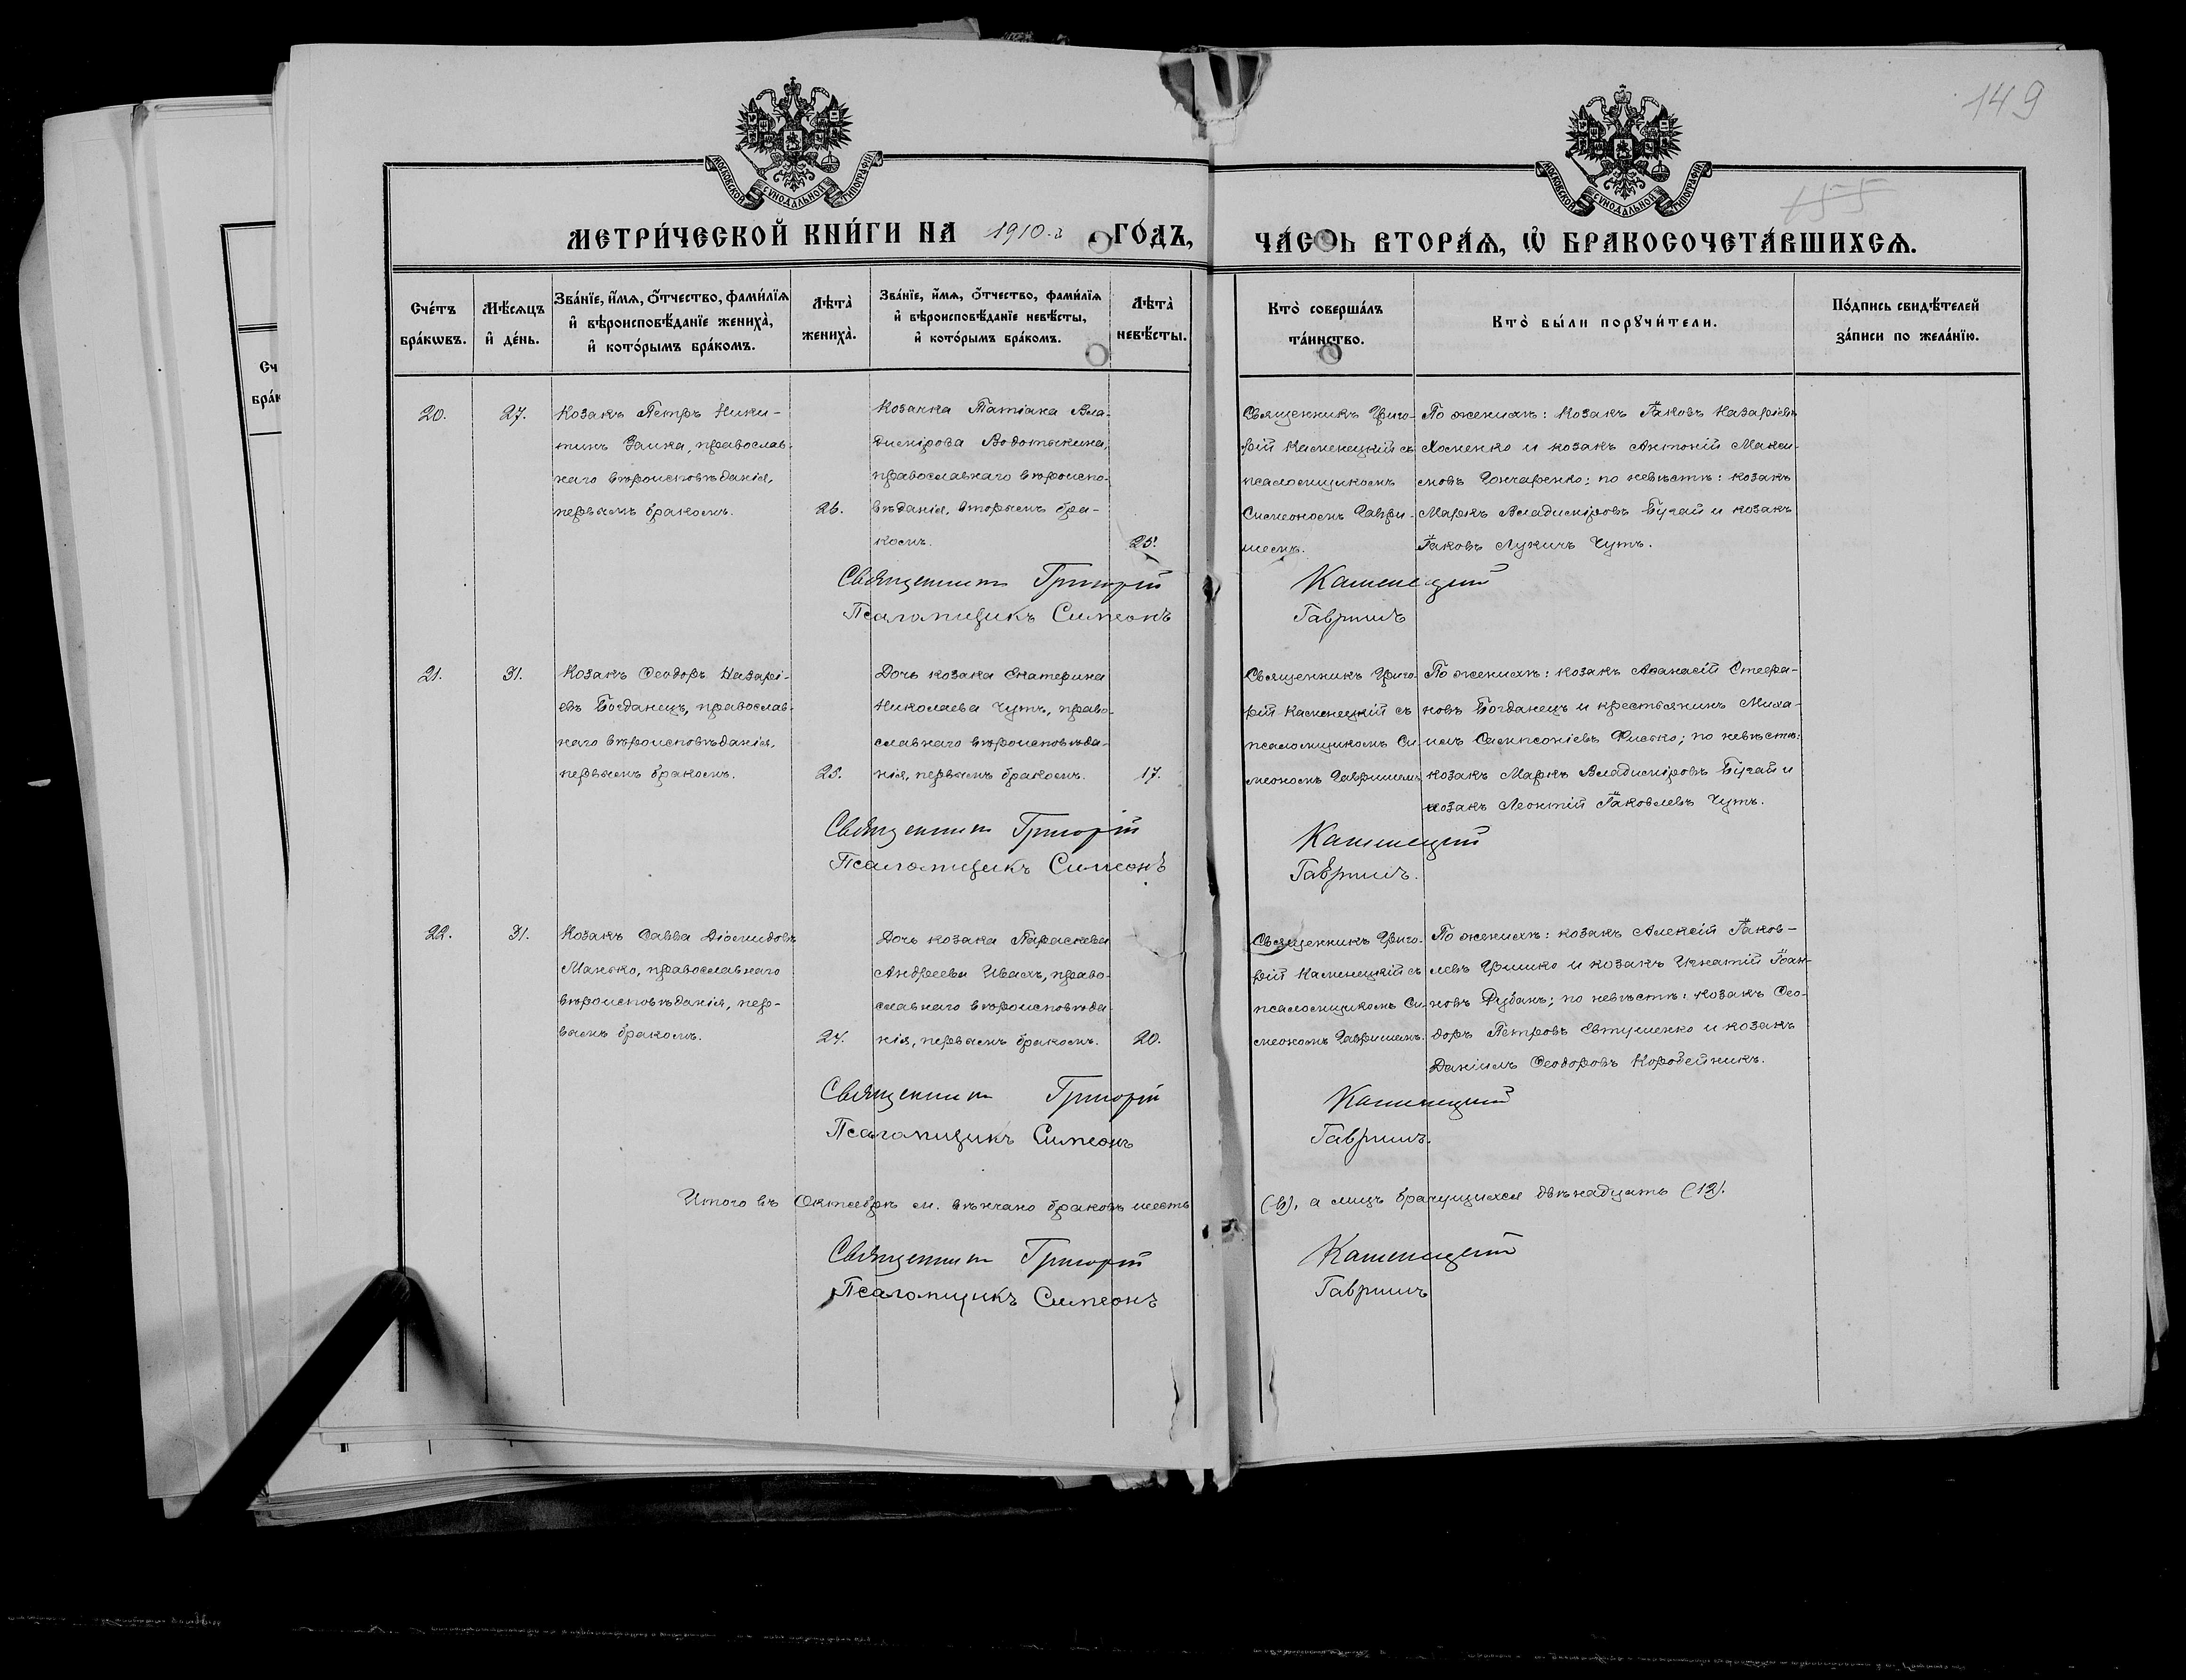 149
МОСКОВСКОЙ СѴНОДАЛЬНОЙ ТИПОГРАФІИ
МОСКОВСКОЙ СѴНОДАЛЬНОЙ ТИПОГРАФІИ
155
МЕТРИ́ЧЕСКОЙ КНИ́ГИ НА 1910-й ГО́ДЪ,
ЧА́СТЬ ВТОРА́Ѧ, Ѽ БРАКОСОЧЕТА́ВШИХСѦ.
Сче́тъ
бра́кѡвъ.
Мѣ́сѧцъ
и҆ де́нь.
Зва́нїе, и҆́мѧ, ѻ҆́тчество, фами́лїѧ
и҆ вѣроисповѣ́данїе жениха̀,
и҆ кото́рымъ бра́комъ.
Лѣта̀
жениха̀.
Зва́нїе, и҆́мѧ, ѻ҆́тчество, фами́лїѧ
и҆ вѣроисповѣ́данїе невѣ́сты,
и҆ кото́рымъ бра́комъ.
Лѣта̀
невѣ́сты.
Кто̀ соверша́лъ
та́инство.
Кто̀ бы́ли порꙋчи́тели.
По́дпись свидѣ́телей
за́писи по жела́нїю.
Сч
бра́к
20.
27.
Козакъ Петръ Ники-
тинъ Заика, православ-
наго вѣроисповѣданія,
первымъ бракомъ.
26.
Козачка Татіана Вла-
димірова Водотыкина,
православнаго вѣроиспо-
вѣданія, вторымъ бра-
комъ.
25.
Священникъ Григо-
рій Каменецкій съ
псаломщикомъ
Симеономъ Гаври-
шемъ.
По женихѣ: козакъ Іаковъ Назаріевъ
Хоменко и козакъ Антоній Макси-
мовъ Гончаренко; по невѣстѣ: козакъ
Маркъ Владиміровъ Бугай и козакъ
Іаковъ Лукичъ Чутъ.
Священникъ Григорій Каменецкій
Псаломщикъ Симеонъ Гавришъ
21.
31.
Козакъ Ѳеодоръ Назарі-
евъ Богданецъ, православ-
наго вѣроисповѣданія,
первымъ бракомъ.
25.
Дочь козака Екатерина
Николаева Чутъ, право-
славнаго вѣроисповѣда-
нія, первымъ бракомъ.
17.
Священникъ Григо-
рій Каменецкій съ
псаломщикомъ Си-
меономъ Гавришемъ
По женихѣ: козакъ Аѳанасій Стефа-
новъ Богданецъ и крестьянинъ Миха-
илъ Сампсоніевъ Фисько; по невѣстѣ:
козакъ Маркъ Владиміровъ Бугай и
козакъ Леонтій Іаковлевъ Чутъ.
Священникъ Григорій Каменецкій
Псаломщикъ Симеонъ Гавришъ.
22.
31.
Козакъ Савва Діомидовъ
Манько, православнаго
вѣроисповѣданія, пер-
вымъ бракомъ.
24.
Дочь козака Параскева
Андреева Ивахъ, право-
славнаго вѣроисповѣда-
нія, первымъ бракомъ.
20.
Священникъ Григо-
рій Каменецкій съ
псаломщикомъ Си-
меономъ Гавришемъ.
По женихѣ: козакъ Алексій Іаков-
левъ Гришко и козакъ Игнатій Іоан-
новъ Рубанъ; по невѣстѣ: козакъ Ѳео-
доръ Петровъ Евтушенко и козакъ
Даніилъ Ѳеодоровъ Коробейникъ.
Священникъ Григорій Каменецкій
Псаломщикъ Симеонъ Гавришъ.
Итого въ Октябрѣ м. вѣнчано браковъ шесть (6), а лицъ брачущихся двѣнадцать (12).
Священникъ Григорій Каменецкій
Псаломщикъ Симеонъ Гавришъ